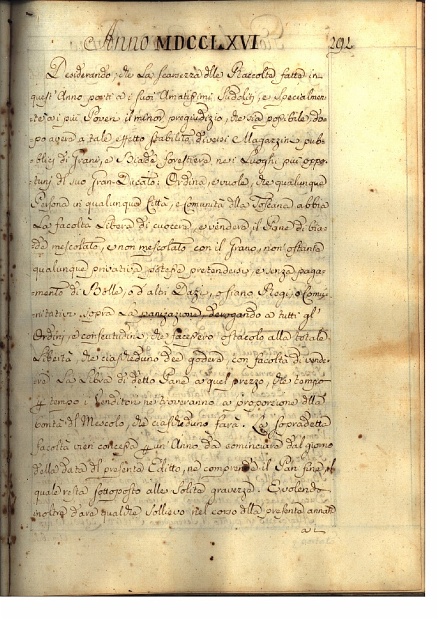 Anno MDCCLXVI 292
Desiderando, che La Scarsezza dlle Raccolte fatte in
quest' Anno porti a i suoi Amatissimi Sudditi, e specialmen-
te a i più Poveri il minor pregiudizio, che sia possibile, do-
po avere a tale effetto stabilito diversi Magazzini pub-
blici di Grani, e Biade forestiere nei Luoghi più oppor-
tuni di suo Gran-Ducato; Ordina, e vuole, che qualunque
Persona in qualunque Città, e Comunità dlla Toscana abbia
La facoltà Libera di cuocere, e vendere il Pane di bia-
de mescolato, e non mescolato con il Grano, non ostante
qualunque privativa potesse pretendersi, e senza paga-
mento di Bolle, o d'altri Dazi, o siano Regi, o Comu-
nitativi sopra La panizazione, derogando a tutti gl'
Ordini, e consuetudini, che facessero ostacolo alla totale
Libertà, che ciascheduno dee godere, con facoltà di vende-
re La Libra di detto Pane a quel prezzo, che tempo
p tempo i Venditori ne troveranno a proporzione dlla
bontà dl Mescolo, che ciascheduno farà. La sopradetta
facoltà vien concessa p un'Anno da cominciare dal giorno
della data dl presente Editto, ne comprende il Pan fine, il
quale resta sottoposto alle Solite gravezze. E volendo
inoltre dare qualche Sollievo nel corso dlla presente annata